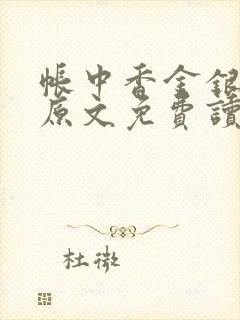 帳中香金銀
原文免費讀
杜撒